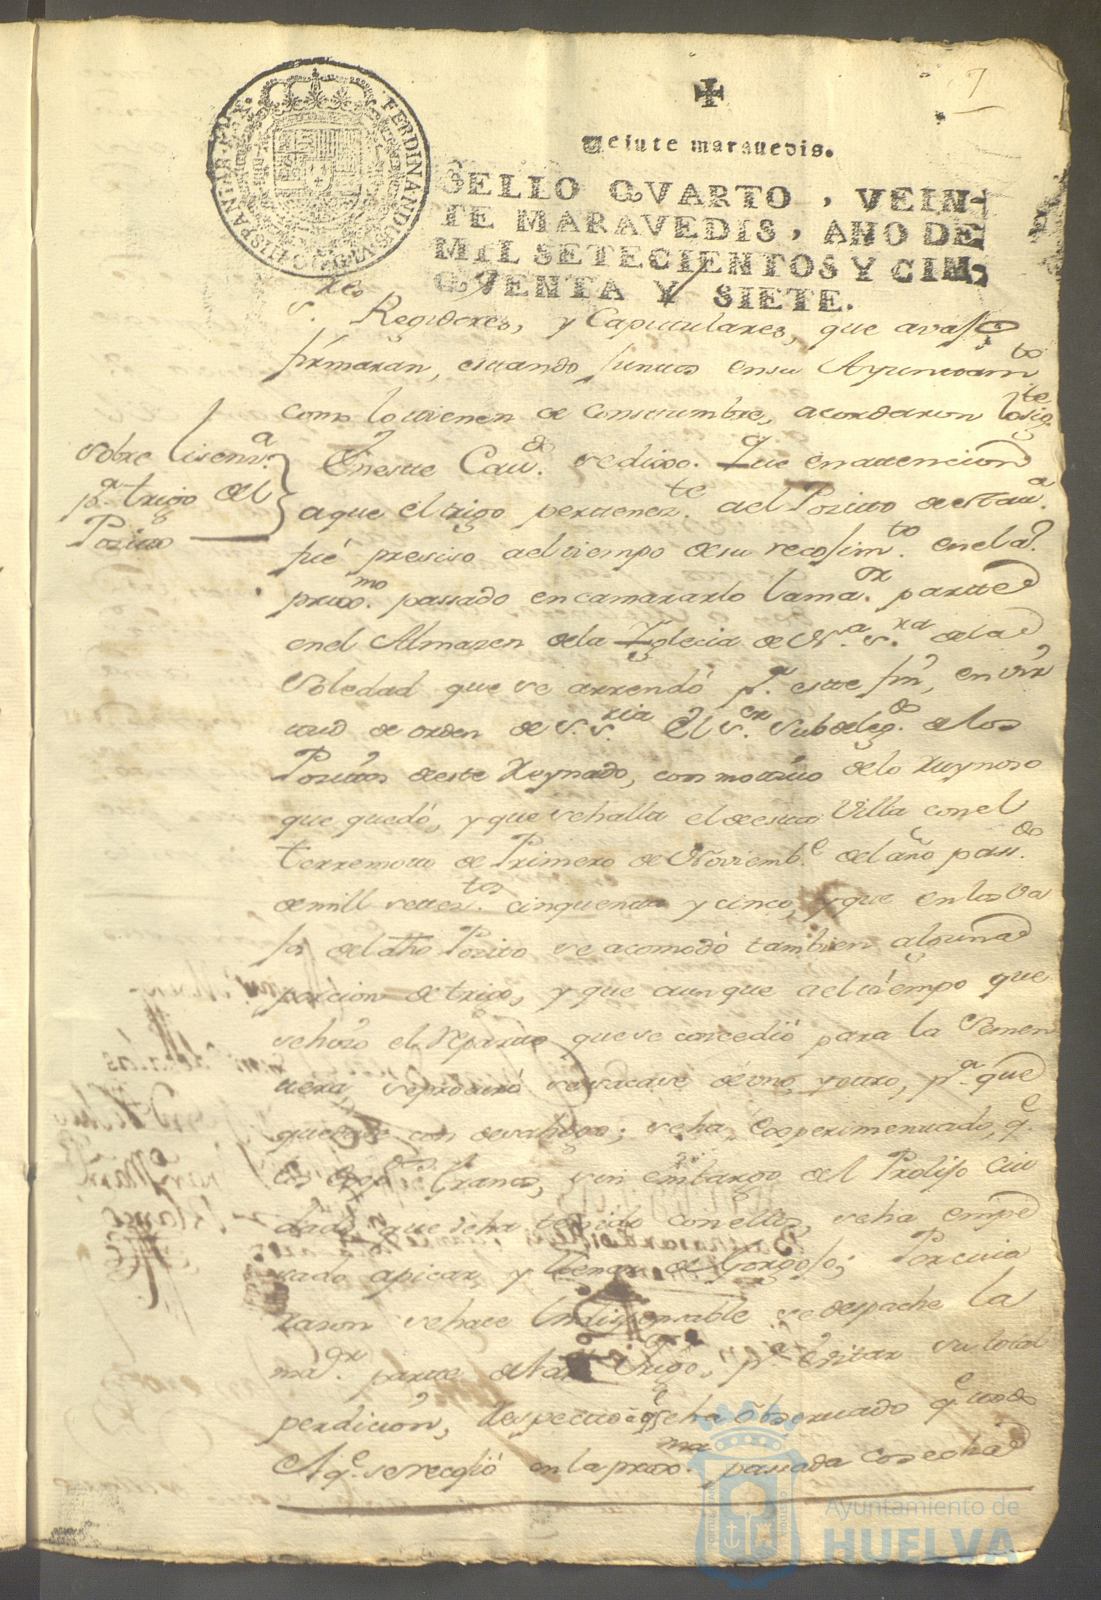 7
Veinte marauedis.
SELLO QVARTO, VEIN-
TE MARAVEDIS, AÑO DE
MIL SETECIENTOS Y CIN-
QVENTA Y SIETE.
FERDINANDUS VI D G HISPANIAR REX
s.res Regidores, y Capitulares, que avajo
firmaran, estando juntos en su Ayuntam.to
como lo tienen de Constumbre, acordaron lo sig.te
Sobre lisenz.a
p.a trigo del
Posito
En este Cav.do se dixo. Que en attencion
a que el trigo pertenez.te a el Posito de esta v.a
fue presiso a el tiempo de su recojim.to en el a.o
prox.mo passado encamararlo la ma.or parte
en el Almazen de la Yglecia de N.a S.ra de la
Soledad que se arrendó p.a este fin, en vir
tud de orden de S. S.ria El S.or Subdeleg.do de los
Positos de este Reynado, con motivo de lo ruynoso
que quedó, y que se halla el de esta Villa con el
terremoto de Primero de Noviemb.e del año pass.do
de mill setez.tos cinquenta y cinco, y que en los va
jos del dho Posito se acomodó tambien alguna
porcion de trigo, y que aunque a el tiempo que
se hizo el reparto que se concedió para la Semen
tera, se procuró se sacase de uno, y otro, p.a que
quedase con desahogo; se ha experimentado, q.e
los Granos, sin embargo del Prolijo Cui
dado que se ha tenido con ellos, se ha empe
sado a picar y llenar de Gorgojo; Por cuia
razon se hace Indispensable se despache la
ma.or parte de trigo, p.a evitar su total
perdicion, Respecto a q.e se ha observado q.e todo
el q.e se recojió en la prox.ma passada cosecha
Ayuntamiento de
HUELVA